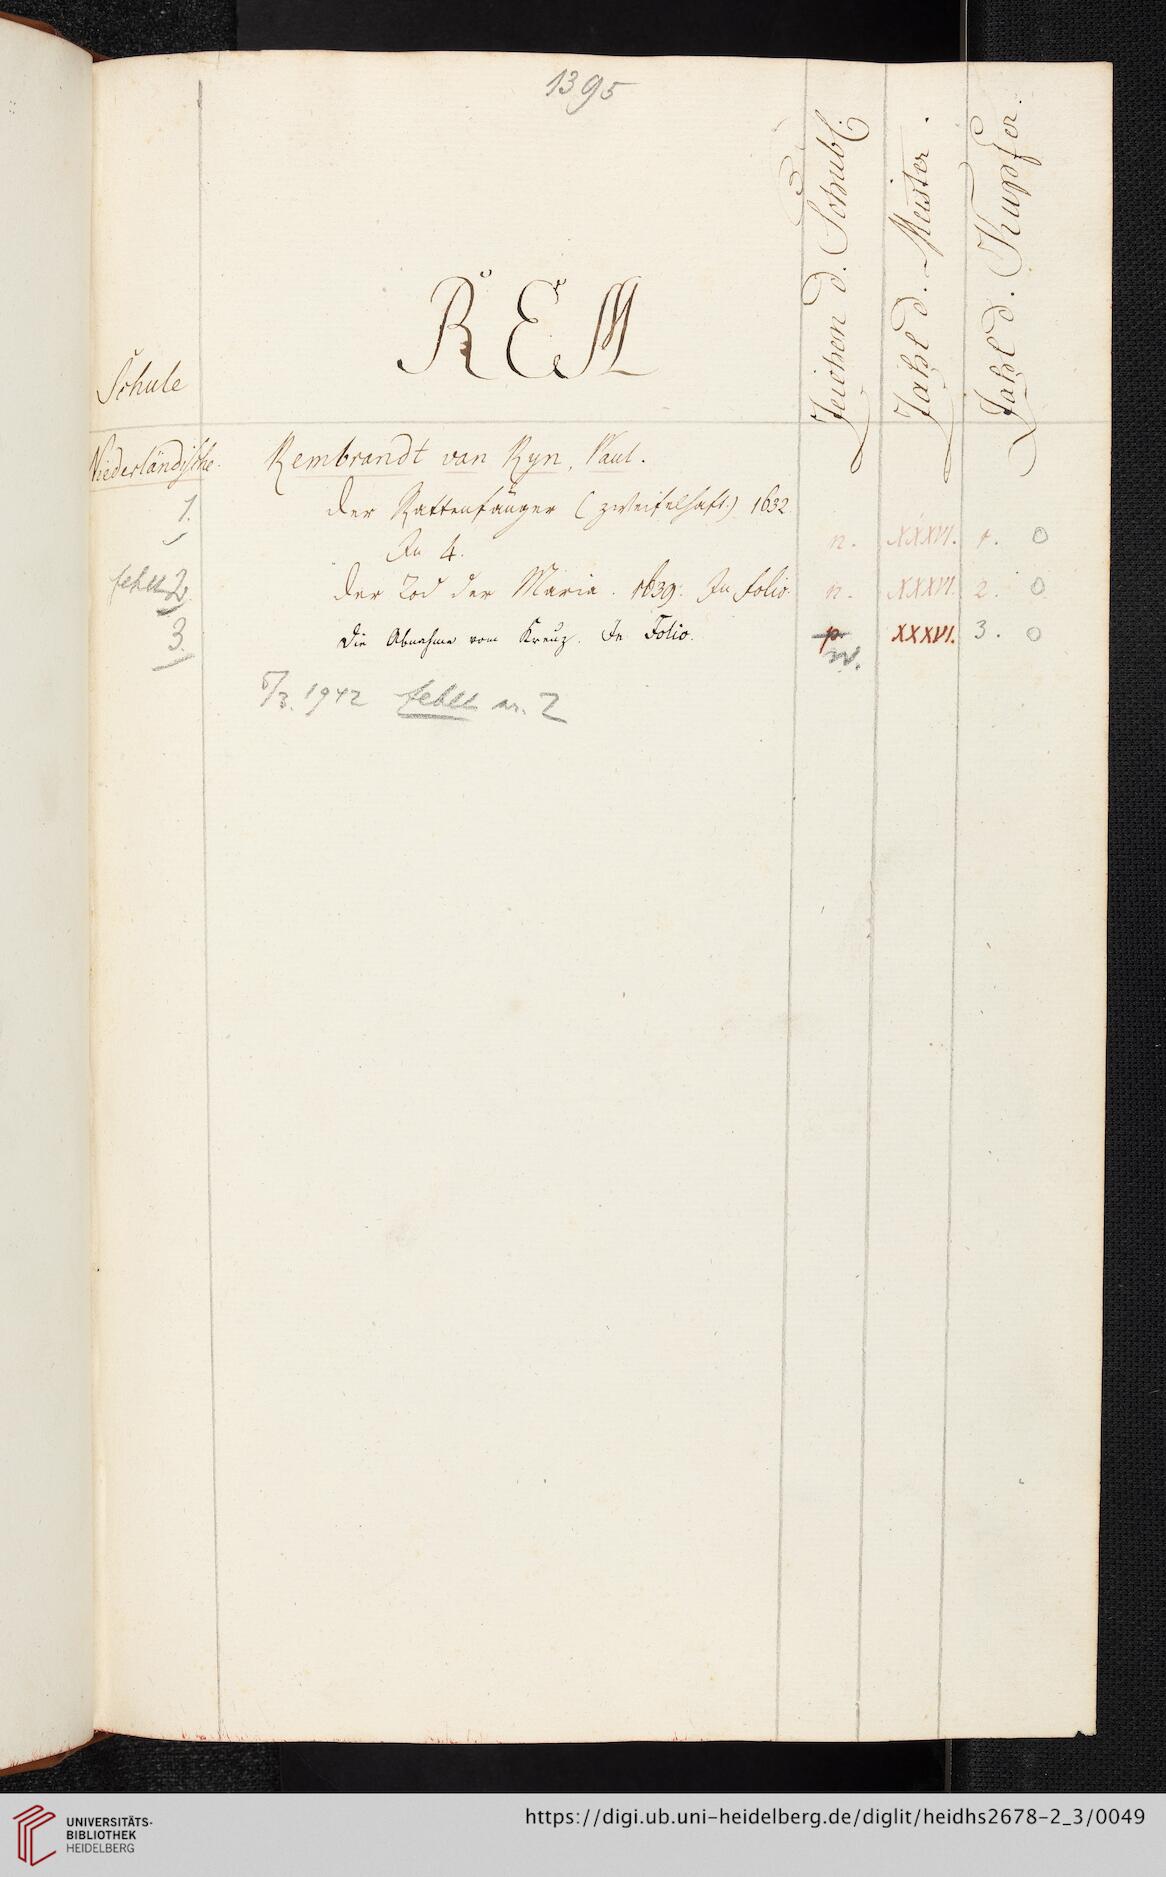 1395
Zeichen d. Schubl.
Zahl d. Meister.
Zahl d. Kupfer.
REM
Schule
Niederländische.
Rembrandt van Ryn, Paul.
1.
Der Rattenfänger (zweifelhaft.) 1632
In 4.
n. XXXVI. 1. 0
fehlt 2.
Der Tod der Maria. 1639. In folio.
n. XXXVI. 2. 0
3.
Die Abnahme vom Kreuz. In Folio.
p. XXXVI. 3. 0
n.
5/3. 1942 fehlt nr. 2
UNIVERSITÄTS-
BIBLIOTHEK
HEIDELBERG
https://digi.ub.uni-heidelberg.de/diglit/heidhs2678-2_3/0049